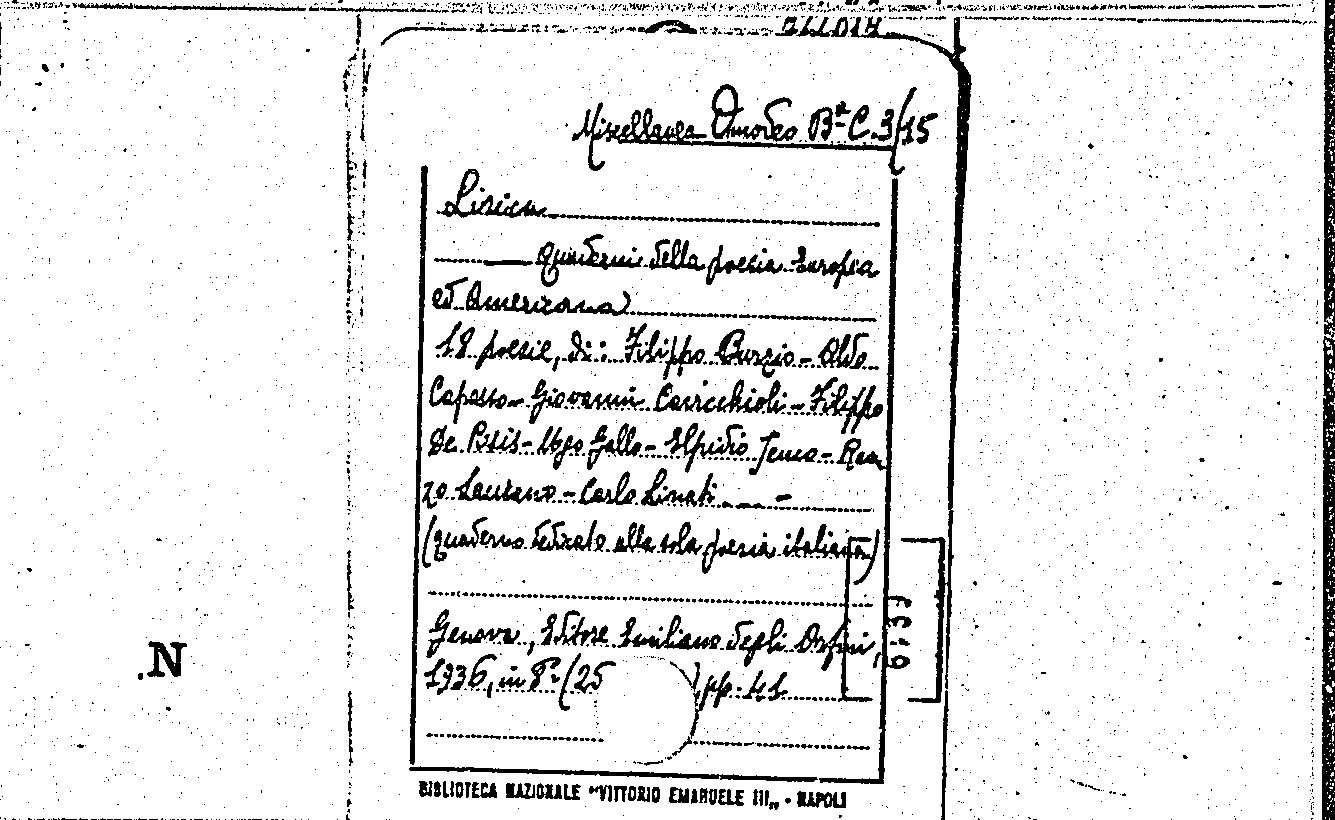 Miscellanea Omodeo Bª C. 3/15
Lirica
quaderni della poesia Europea
ed Americana
18 poesie, di: Filippo Burzio - Aldo
Capasso - Giovanni Cavicchioli - Filippo
De Pisis - Ugo Gallo - Elpidio Jenco - Ren
zo Laurano - Carlo Linati -
(quaderno dedicato alla sola poesia italiana)
Genova, Editore Emiliano degli Orfini,
1936, in 8º (25 ), pp. 41
BIBLIOTECA NAZIONALE "VITTORIO EMANUELE III„ - NAPOLI
.N